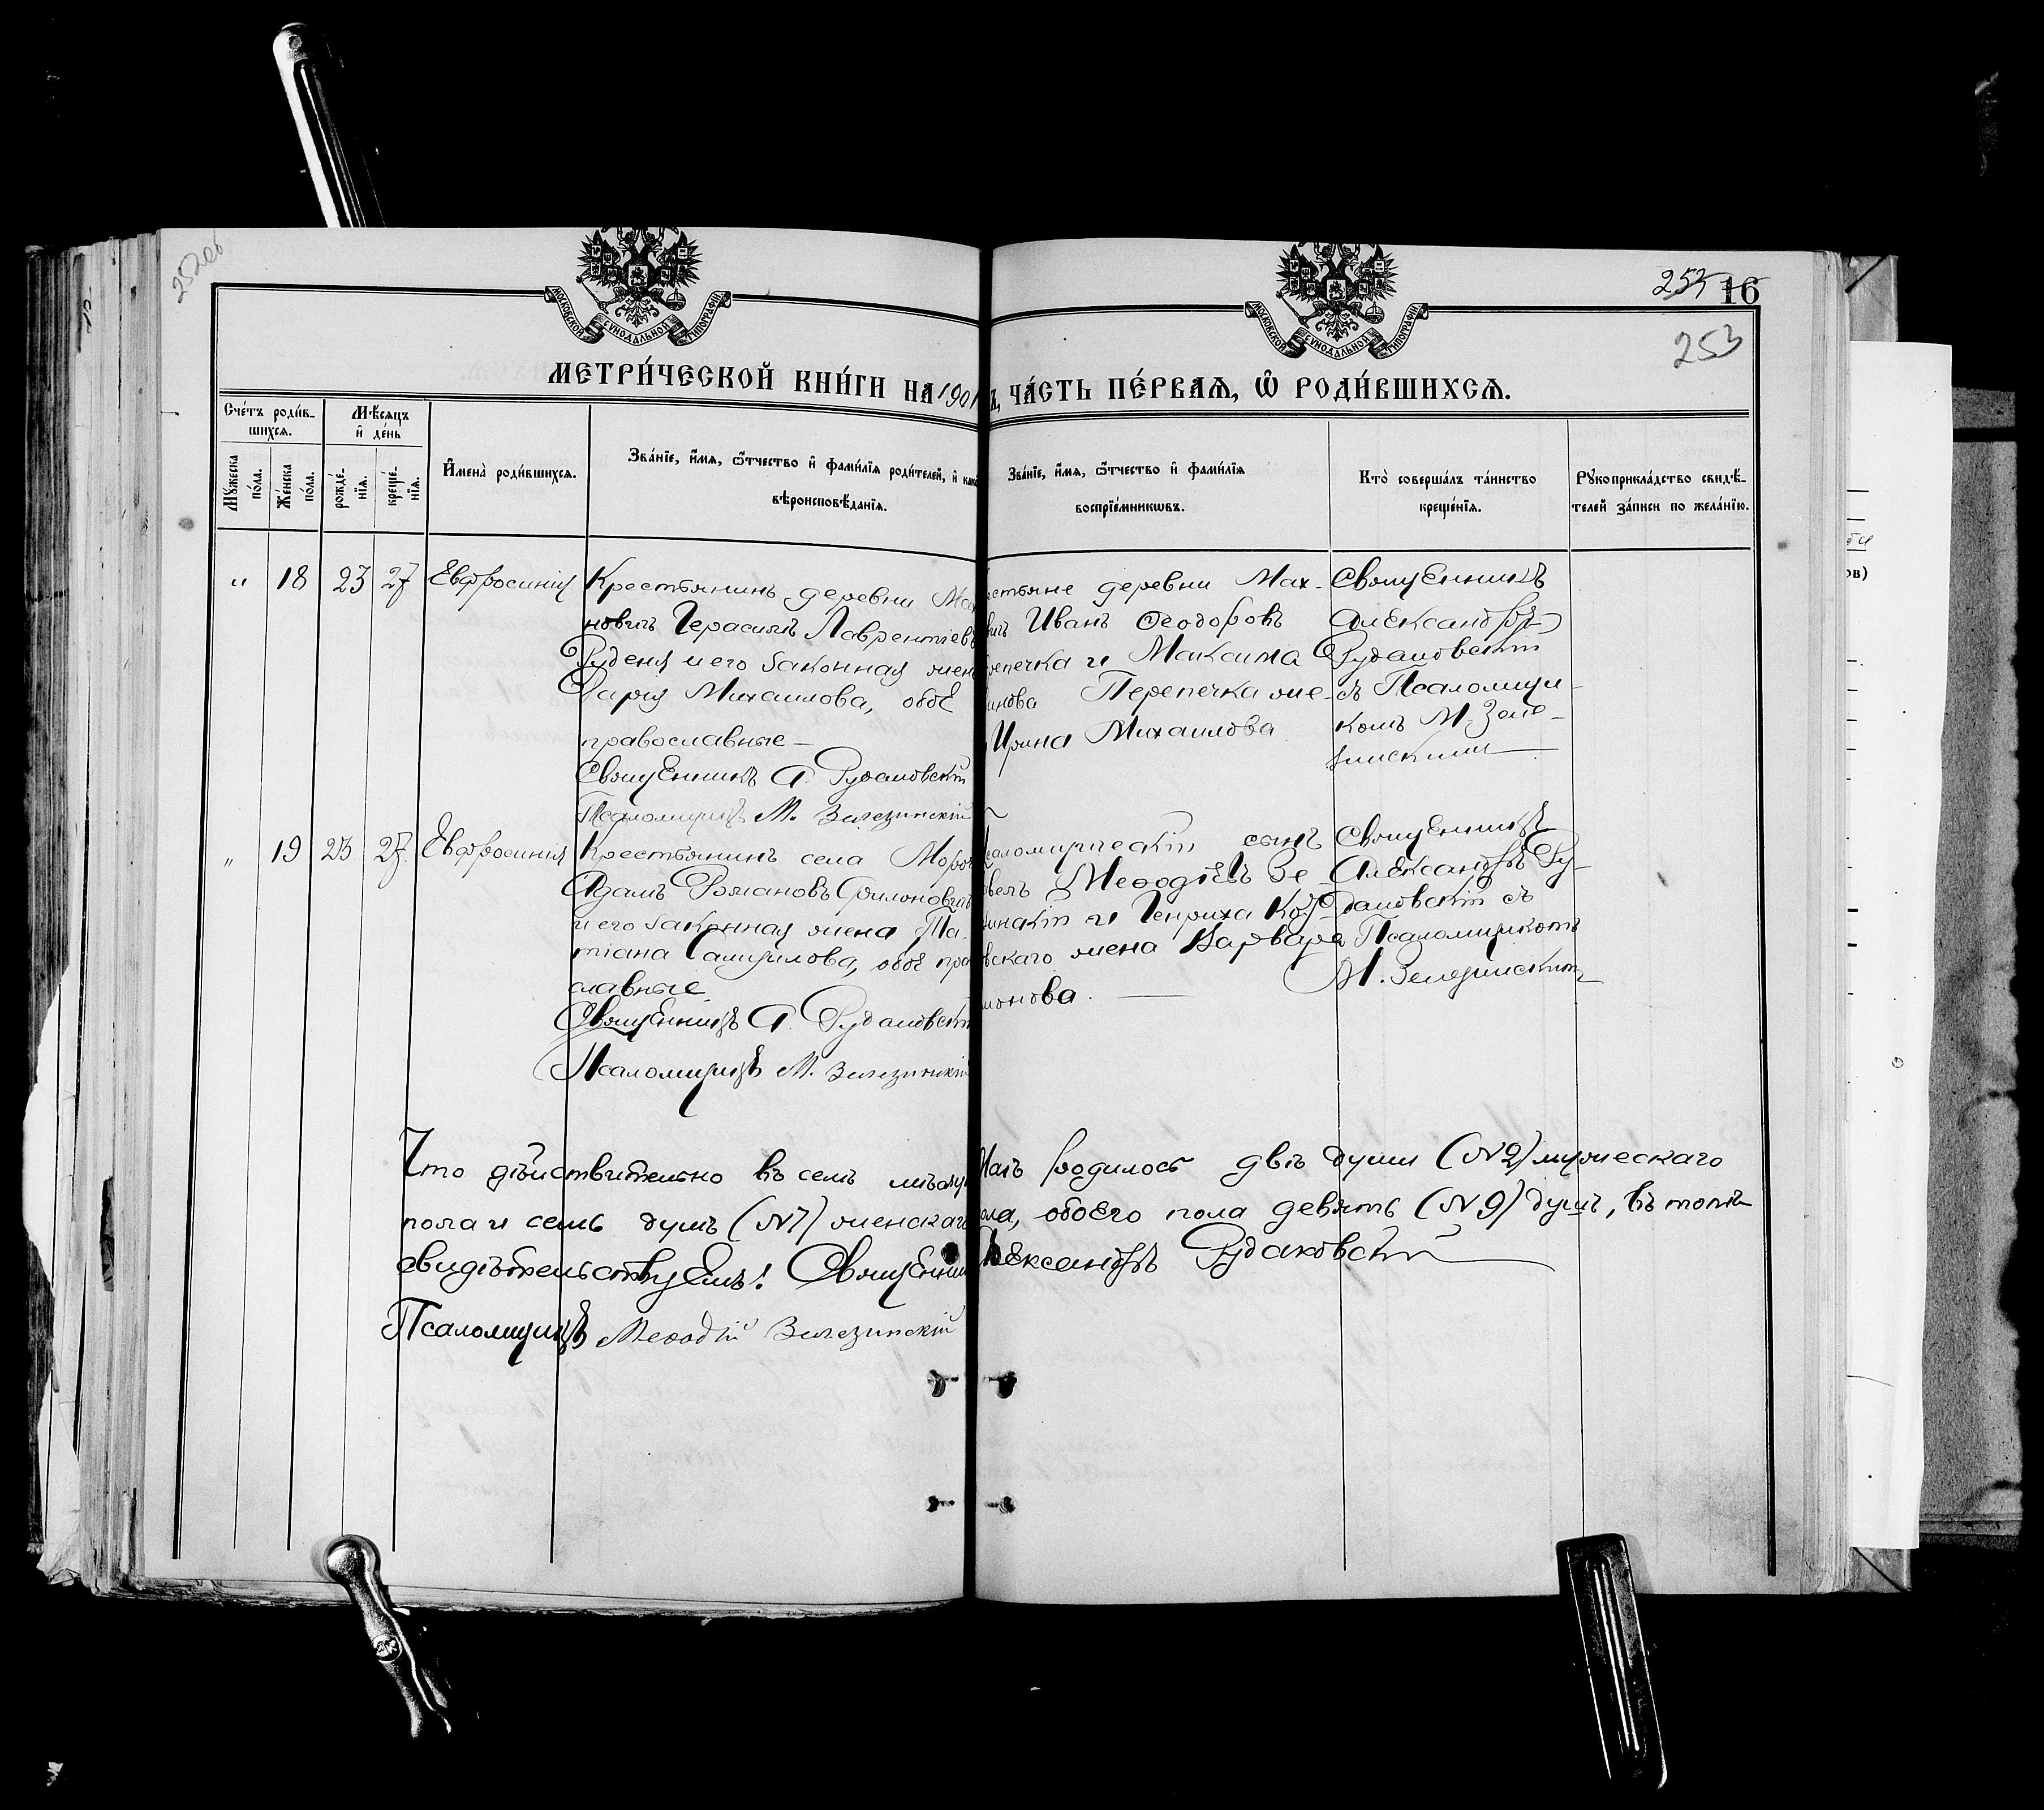 252 об
253 16
253
МОСКОВСКОЙ СѴНОДАЛЬНОЙ ТИПОГРАФІИ
МОСКОВСКОЙ СѴНОДАЛЬНОЙ ТИПОГРАФІИ
МЕТРИ́ЧЕСКОЙ КНИ́ГИ НА 1901 Ъ, ЧА́СТЬ ПЕ́РВАѦ, Ѽ РОДИ́ВШИХСѦ.
Сче́тъ роди́в-
шихсѧ.
Мꙋ́жеска по́ла.
Же́нска по́ла.
Мѣ́сѧцъ
и҆ де́нь
рожде́-
нїѧ.
креще́-
нїѧ.
И҆мена̀ роди́вшихсѧ.
Зва́нїе, и҆́мѧ, ѻ҆́тчество и҆ фами́лїѧ роди́телей, и҆ как
вѣроисповѣ́данїѧ.
Зва́нїе, и҆́мѧ, ѻ҆́тчество и҆ фами́лїѧ
воспрїе́мникѡвъ.
Кто̀ соверша́лъ та́инство
креще́нїѧ.
Рꙋкоприкла́дство свидѣ́-
телей за́писи по жела́нїю.
" 18 23 27 Евфросинія
Крестьянинъ деревни Мах
новичъ Герасимъ Лаврентіевъ
Руденя и его законная жен
Дарья Михаилова, обое
православные —
Священникъ А. Рудаковскій
Псаломщикъ М. Зелезинскій
естьяне деревни Мах-
вичъ Иванъ Феодоровъ
репечка и Максима
инова Перепечка же-
Ирина Михаилова
Священникъ
Александръ
Рудаковскій
съ Псаломщи-
комъ М. Зеле-
зинскимъ
" 19 23 27. Евфросинія
Крестьянинъ села Мороч
Адамъ Романовъ Филоновичъ
и его законная жена Та-
тіана Самуилова, обое пра
славные
Священникъ А. Рудаковскій
Псаломщикъ М. Зелезинскій
саломщическій сынъ
Меѳодіевъ Зе-
зинскій и Генриха Коз-
вскаго жена Варвара
монова. —
Священникъ
Александръ Ру-
даковскій съ
Псаломщикомъ
М. Зелезинскимъ
Что дѣйствительно въ семъ мѣсяц родилось двѣ души (№2) мужескаго
пола и семь душъ (№7) женскаг ола, обоего пола девять (№9) душъ, въ томъ
свидѣтельствуемъ! Священни лександръ Рудаковскій
Псаломщикъ Меѳодій Зелезинскій